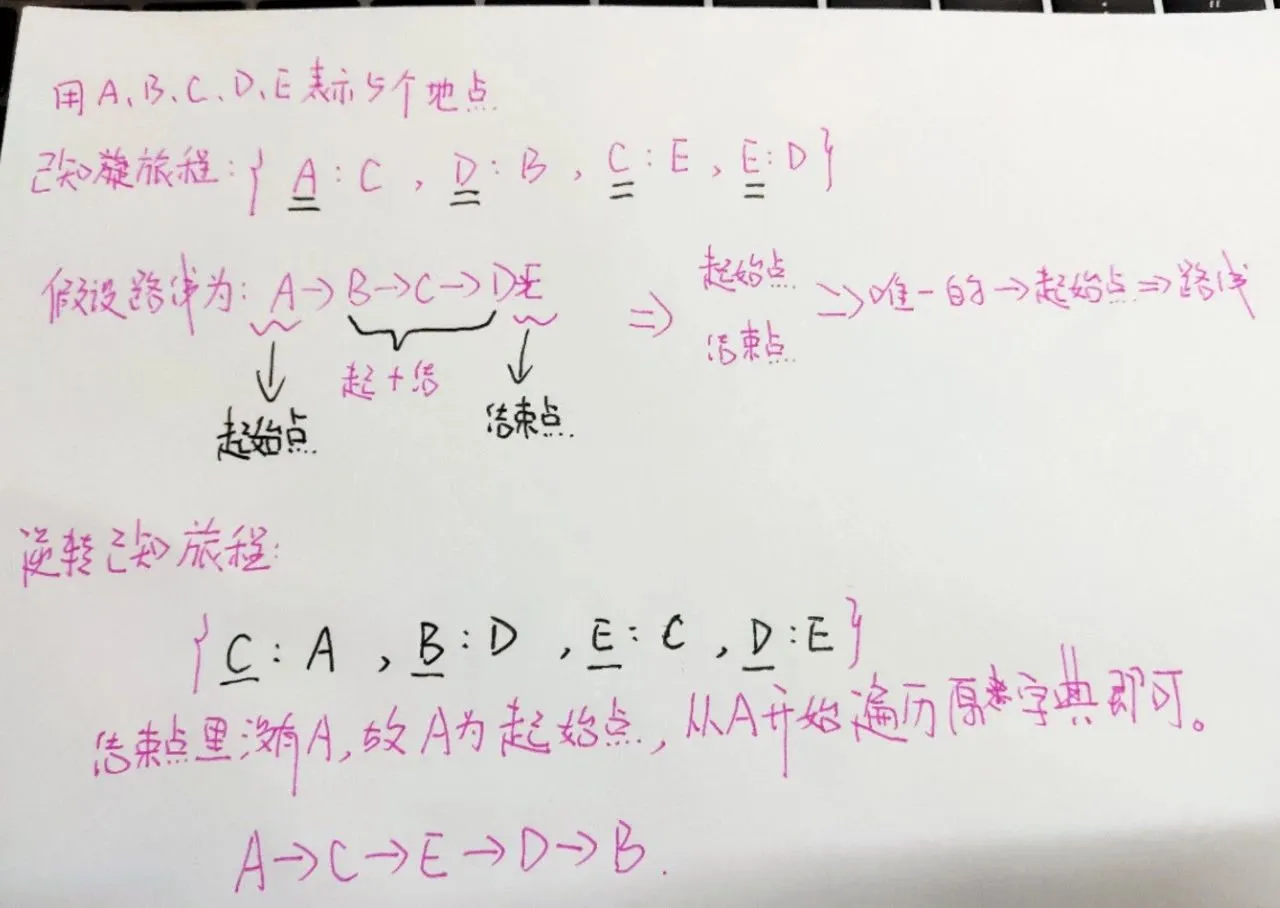 用A、B、C、D、E表示5个地点
已知旅程:{ A:C , D:B , C:E , E:D }
假设路线为: A→B→C→D E
起始点
结束点
⇒ ⇒唯一的→起始点⇒路线
起+结
起始点
结束点
逆转已知旅程:
{ C:A , B:D , E:C , D:E }
结束点里没有A,故A为起始点,从A开始遍历原字典即可。
A→C→E→D→B.